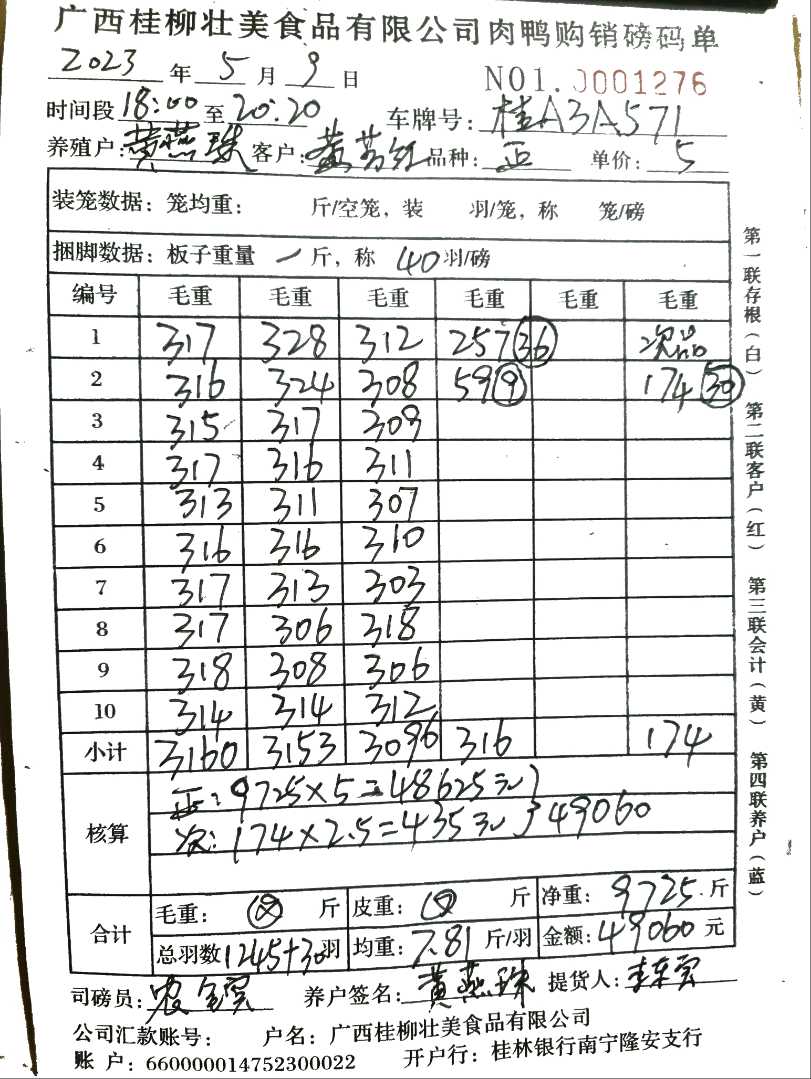 广西桂柳壮美食品有限公司肉鸭购销磅码单
2023 年 5 月 9 日 NO1.0001276
时间段 18:00 至 20:20 车牌号: 桂A3A571
养殖户: 黄燕珠 客户: 品种: 正 单价: 5
装笼数据: 笼均重: 斤/空笼, 装 羽/笼, 称 笼/磅
捆脚数据: 板子重量 一 斤, 称 40 羽/磅
编号 毛重 毛重 毛重 毛重 毛重 毛重
1 317 328 312 257 36 次品
2 316 324 308 59 9 174 30
3 315 317 309
4 317 316 311
5 313 311 307
6 316 316 310
7 317 313 303
8 317 306 318
9 318 308 306
10 314 314 312
小计 3160 3153 3096 316 174
核算
正: 9725×5=48625元
次: 174×2.5=435元 } 49060
合计
毛重: 斤 皮重: 斤 净重: 9725. 斤
总羽数 1245+30 羽 均重: 7.81 斤/羽 金额: 49060 元
司磅员: 养户签名: 黄燕珠 提货人:
公司汇款账号: 户名: 广西桂柳壮美食品有限公司
账 户: 660000014752300022 开户行: 桂林银行南宁隆安支行
第一联存根(白) 第二联客户(红) 第三联会计(黄) 第四联养户(蓝)